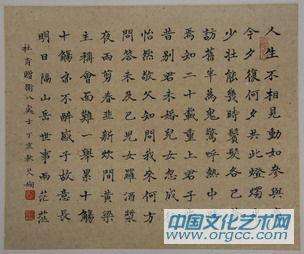 人生不相見動如參與商
今夕復何夕共此燈燭光
少壯能幾時鬢髮各已蒼
訪舊半為鬼驚呼熱中腸
焉知二十載重上君子堂
昔別君未婚兒女忽成行
怡然敬父執問我來何方
問答未及已兒女羅酒漿
夜雨剪春韭新炊間黃粱
主稱會面難一舉累十觴
十觴亦不醉感子故意長
明日隔山岳世事兩茫茫
杜甫贈衛八處士 丁亥秋
中国文化艺术网
www.orgcc.com